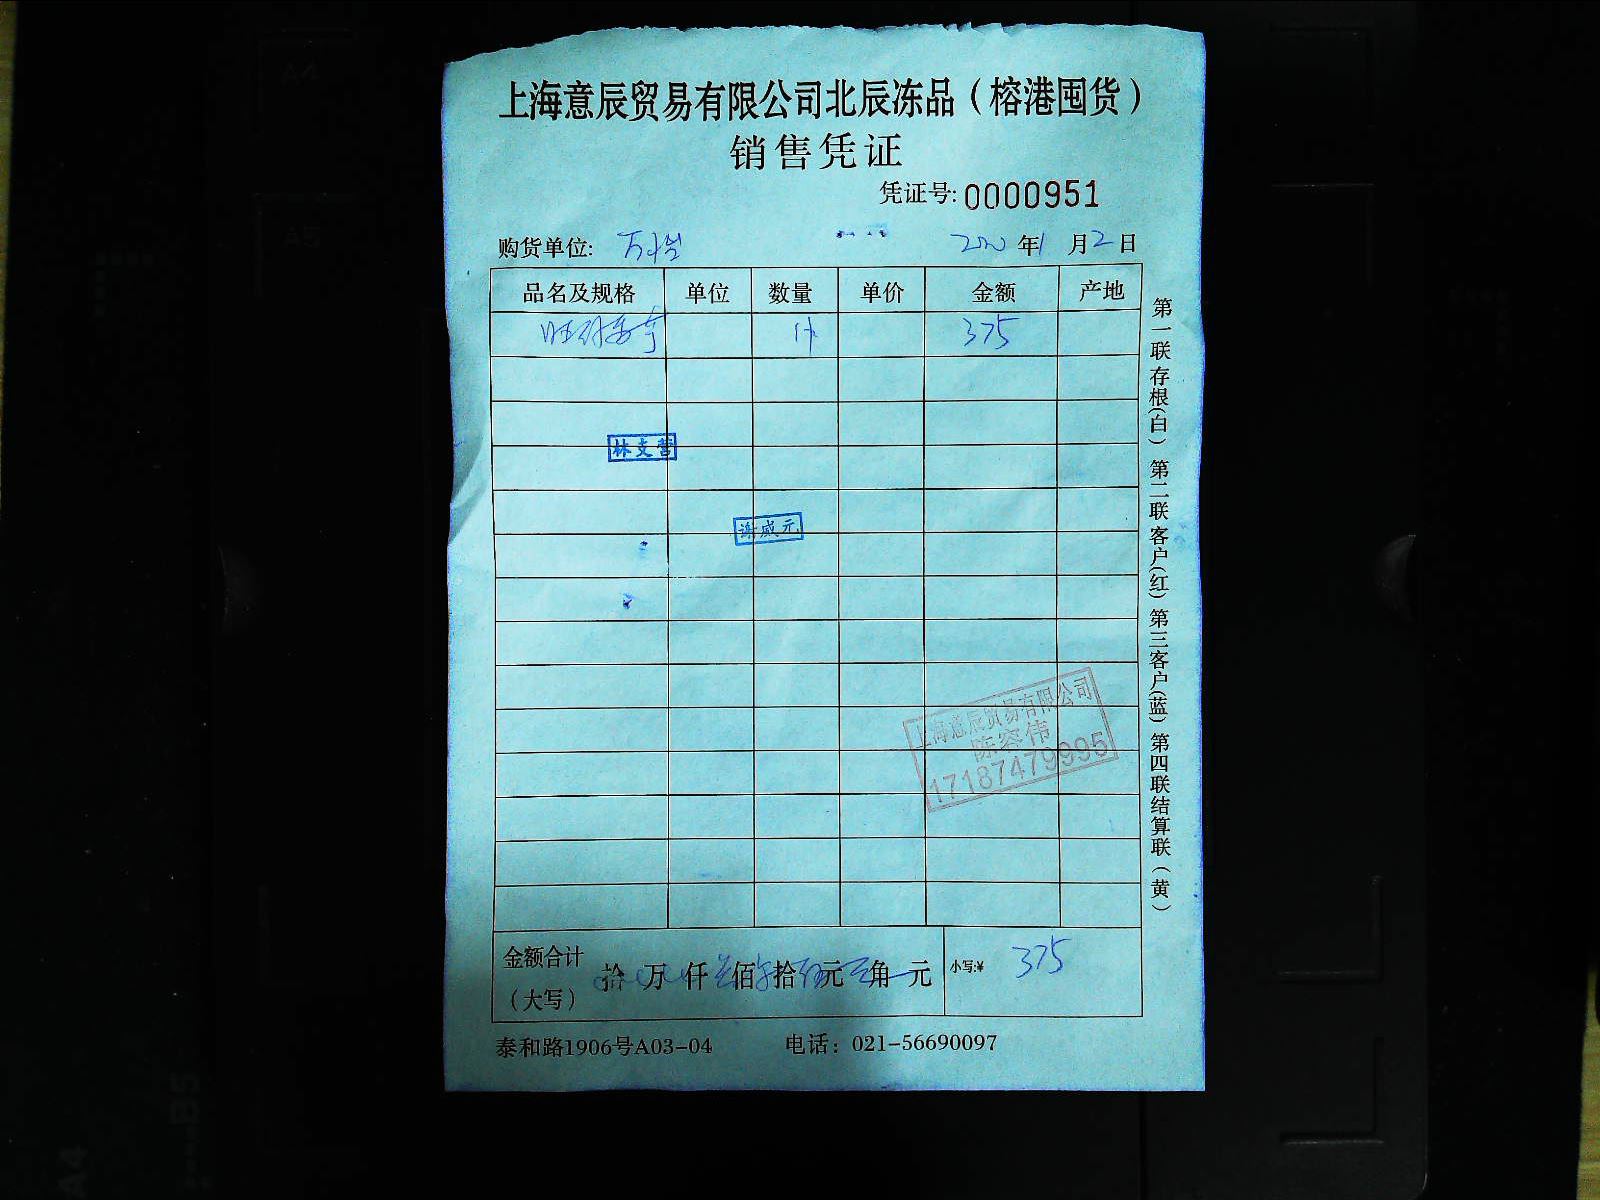 上海意辰贸易有限公司北辰冻品（榕港囤货）
销售凭证
凭证号: 0000951
购货单位: 万 年1月2日
品名及规格 单位 数量 单价 金额 产地
旺 1件 375
林支营
谢威元
上海意辰贸易有限公司
陈容伟
17187479995
金额合计（大写） 拾 万 仟 佰 拾 元 角 元 小写:¥ 375
泰和路1906号A03-04 电话：021-56690097
第一联存根(白) 第二联客户(红) 第三客户(蓝) 第四联结算联(黄)
A4
B5